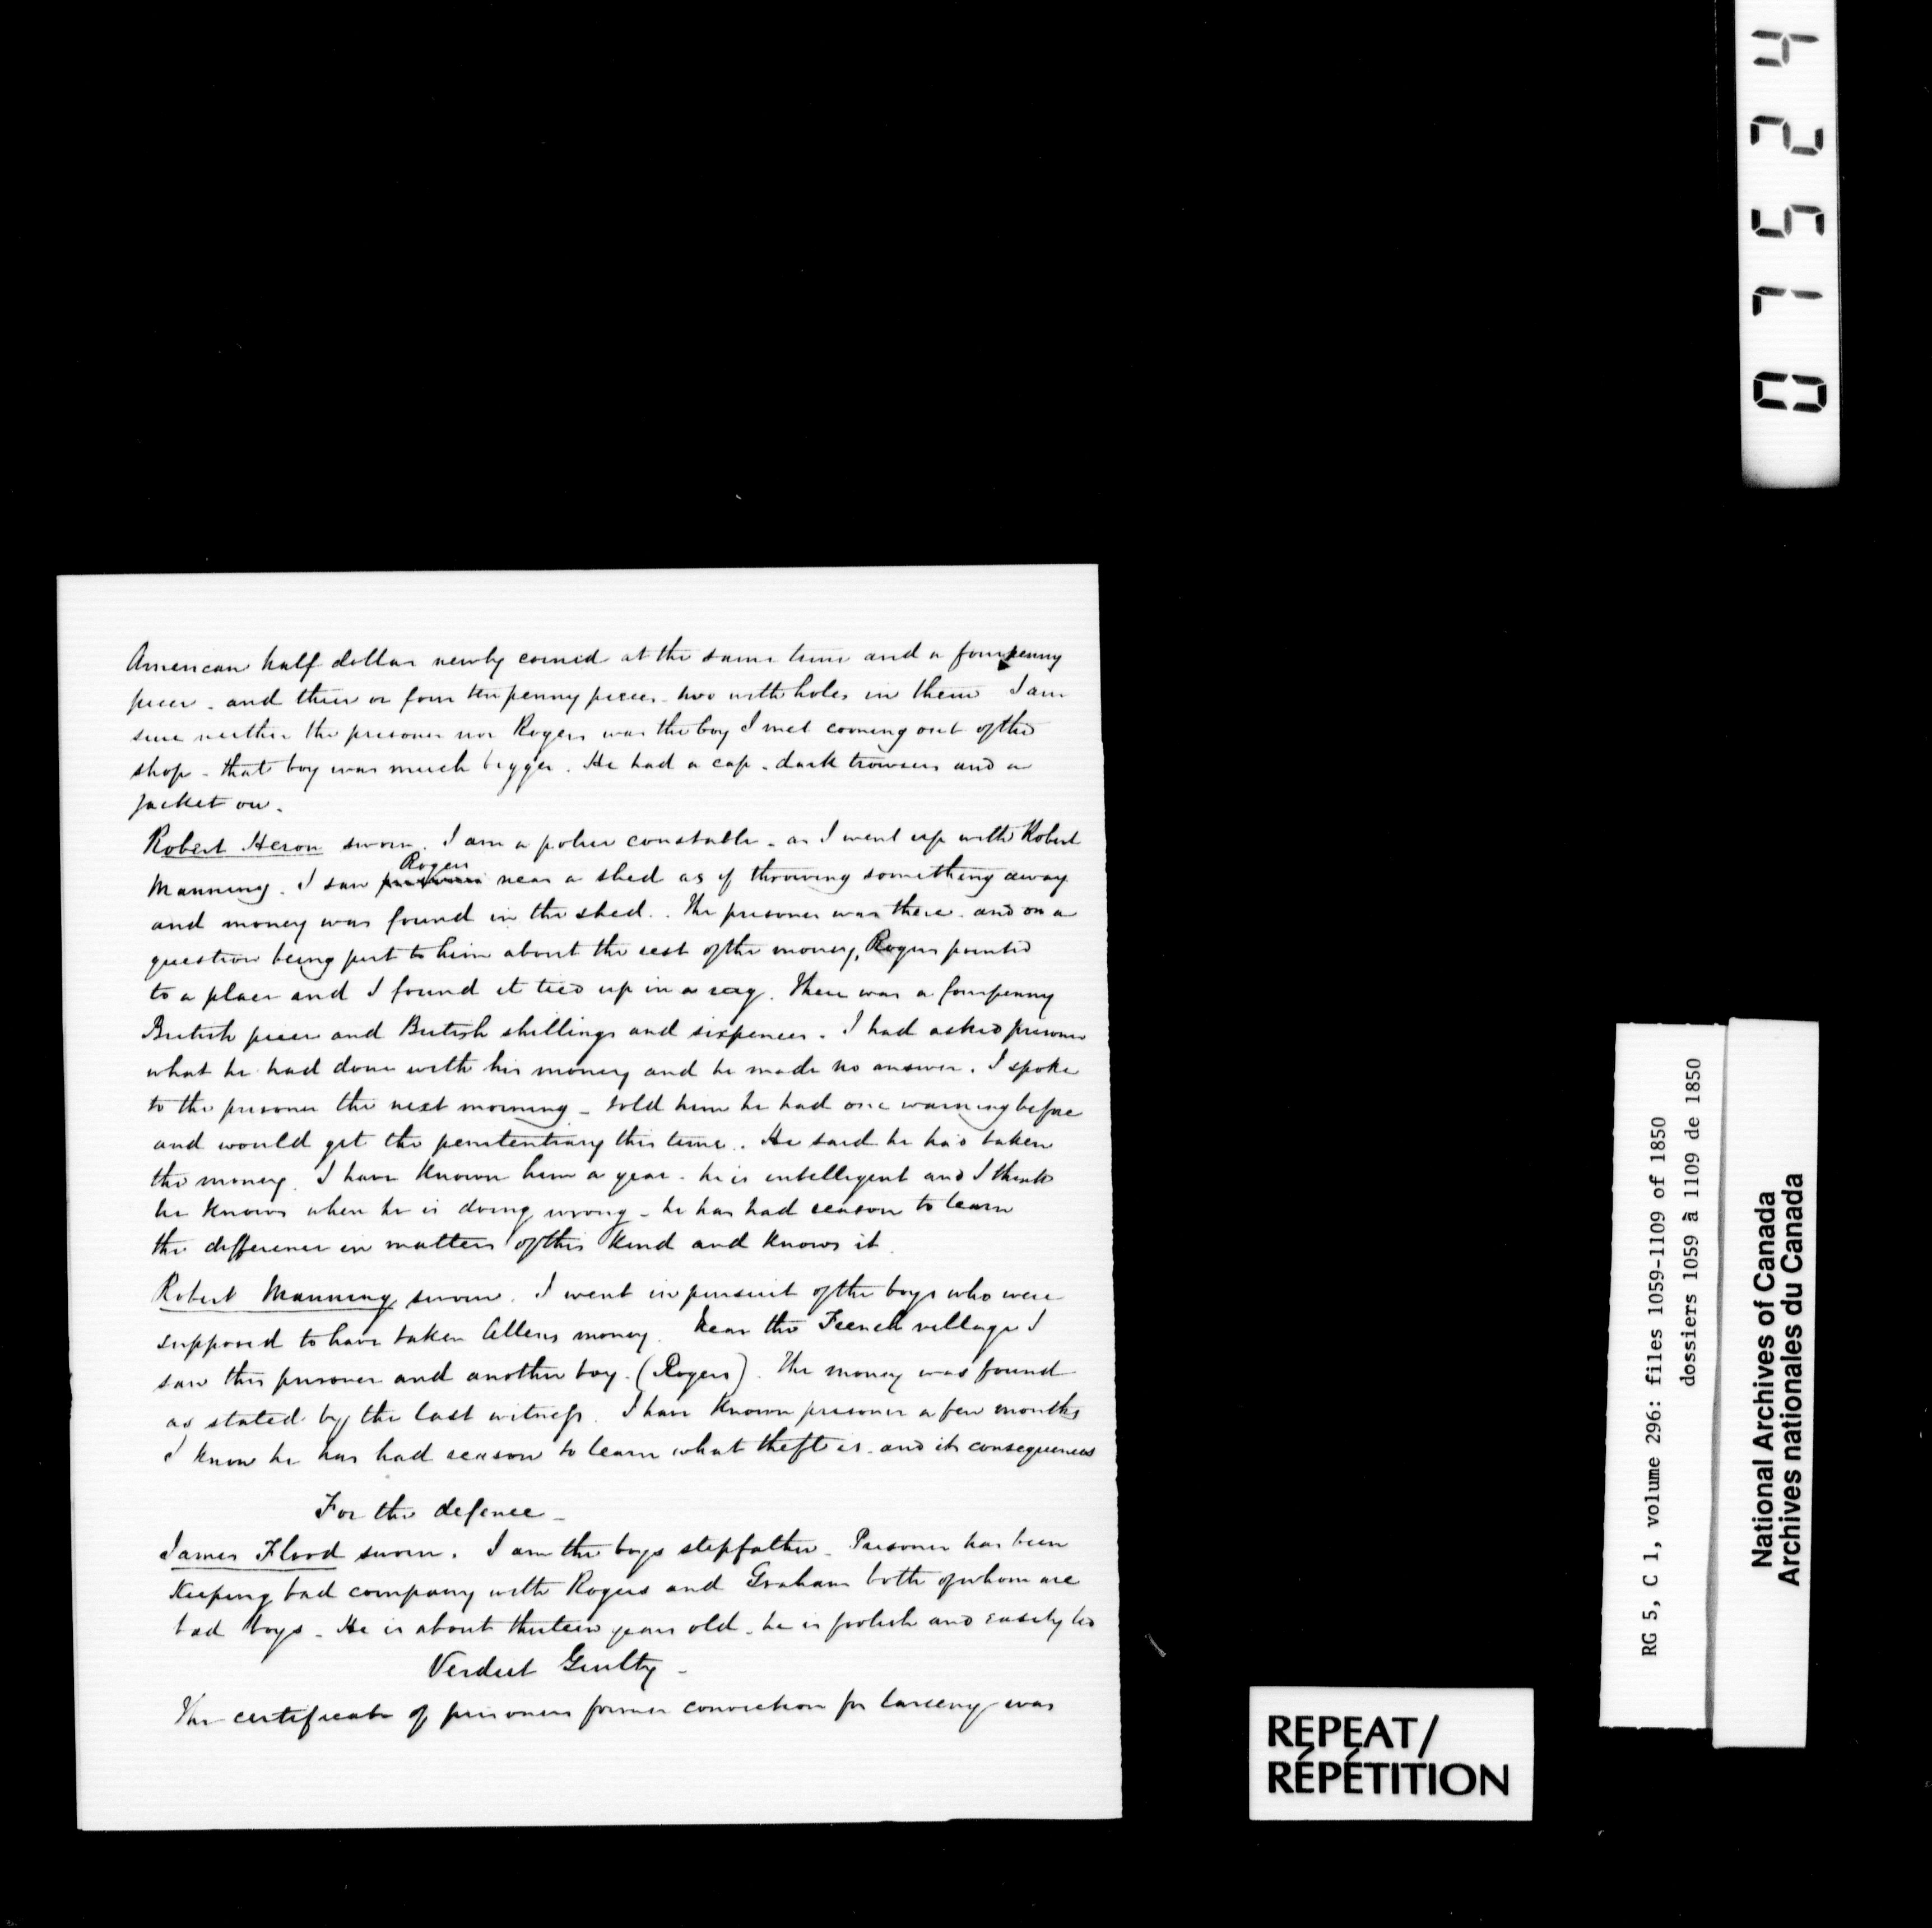 American half dollar newly coined at the same time and a fourpenny
piece - and three or four tenpenny pieces - two with holes in them I am
sure neither the prisoner nor Rogers was the boy I met coming out of the
shop - that boy was much bigger. He had a cap - dark trowsers and a
jacket on.
Robert Heron sworn. I am a police constable - as I went up with Robert
Rogers
Manning. I saw prisoner near a shed as if throwing something away
and money was found in the shed. The prisoner was there. and on a
question being put to him about the rest of the money, Rogers pointed
to a place and I found it tied up in a rag. There was a fourpenny
British piece and British shillings and sixpences. I had asked prisoner
what he had done with his money and he made no answer. I spoke
to the prisoner the next morning - told him he had one warning before
and would get the penitentiary this time. He said he had taken
the money. I have known him a year - he is intelligent and I think
he knows when he is doing wrong - he has had reason to learn
the difference in matters of this kind and knows it.
Robert Manning sworn. I went in pursuit of the boys who were
supposed to have taken Allens money. Near the French village I
saw this prisoner and another boy. (Rogers). The money was found
as stated by the last witness. I have known prisoner a few months
I know he has had reason to learn what theft is - and its consequences
For the defence -
James Flood sworn. I am the boys stepfather - Prisoner has been
keeping bad company with Rogers and Graham both of whom are
bad boys - He is about thirteen years old - he is foolish and easily led
Verdict Guilty -
The certificate of prisoners former conviction for larceny was
REPEAT/
RÉPÉTITION
RG 5, C 1, volume 296: files 1059-1109 of 1850
dossiers 1059 à 1109 de 1850
National Archives of Canada
Archives nationales du Canada
0 1 5 2 4